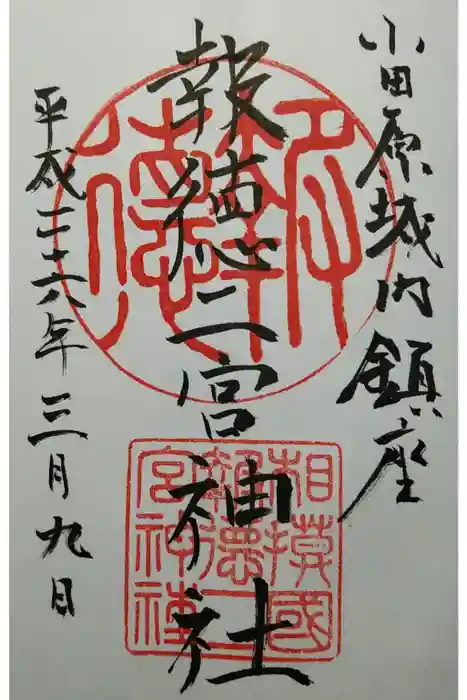 小田原城内鎮座
報徳二宮神社
平成二十六年三月九日
報徳
相模國
報德二
宮神社